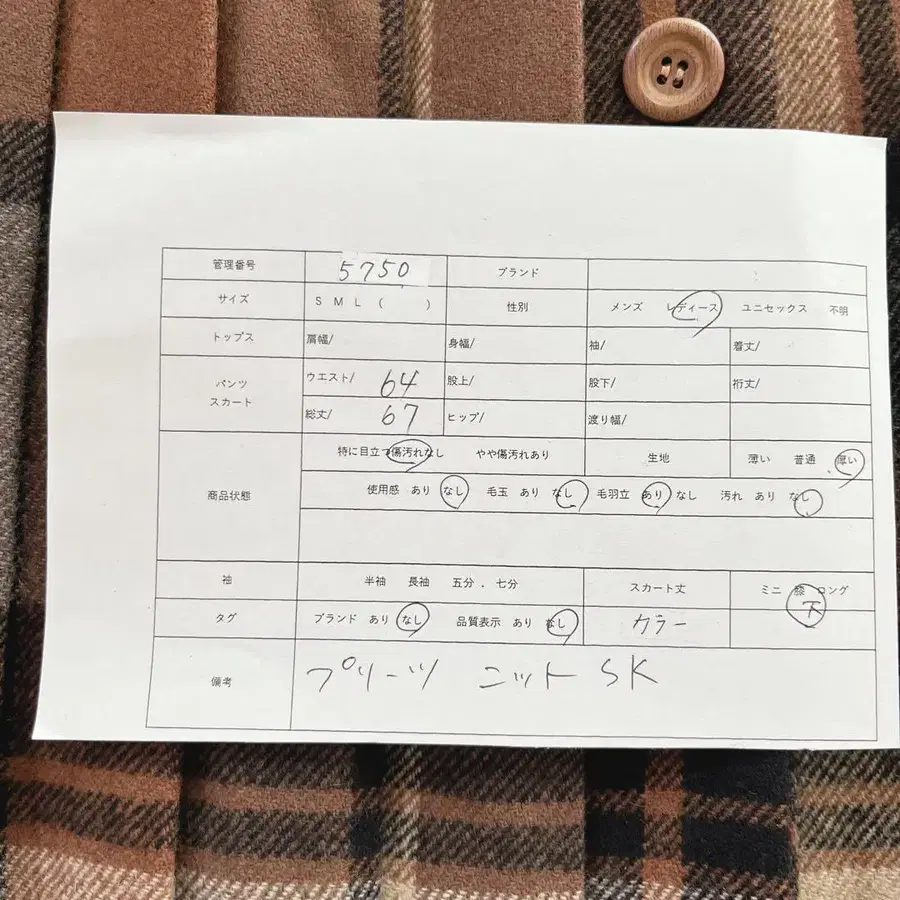 管理番号 5750 ブランド
サイズ S M L ( ) 性別 メンズ レディース ユニセックス 不明
トップス 肩幅/ 身幅/ 袖/ 着丈/
パンツ スカート ウエスト/ 64 股上/ 股下/ 裄丈/
総丈/ 67 ヒップ/ 渡り幅/
商品状態 特に目立つ傷汚れなし やや傷汚れあり 生地 薄い 普通 厚い
使用感 あり なし 毛玉 あり なし 毛羽立 あり なし 汚れ あり なし
袖 半袖 長袖 五分 . 七分 スカート丈 ミニ 膝 ロング
下
タグ ブランド あり なし 品質表示 あり なし カラー
備考 プリーツ ニット SK